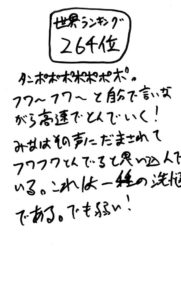 世界ランキング
264位
タンポポポポポポポ。
フワ～フワ～と自分で言いな
がら高速でとんでいく!
みなはその声にだまされて
フワフワとんでると思い込んで
いる。これは一種の洗脳
である。でも弱い!